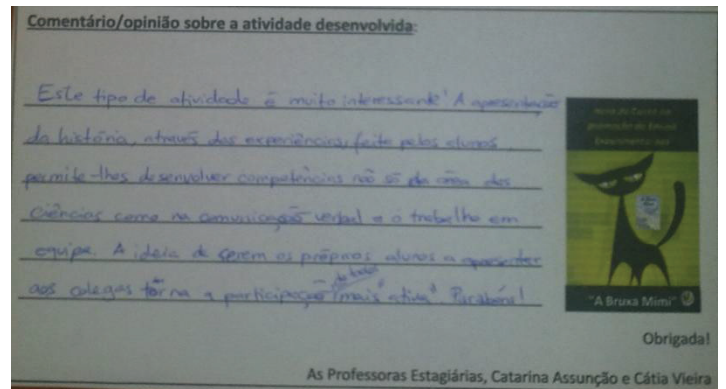 Comentário/opinião sobre a atividade desenvolvida:
Este tipo de atividade é muito interessante! A apresentação
da história, através das experiências, feita pelos alunos,
permite-lhes desenvolver competências não só da área das
Ciências como na comunicação verbal e o trabalho em
equipa. A ideia de serem os próprios alunos a apresentar
de todos
aos colegas torna a participação mais "ativa". Parabéns!
"A Bruxa Mimi"
Obrigada!
As Professoras Estagiárias, Catarina Assunção e Cátia Vieira